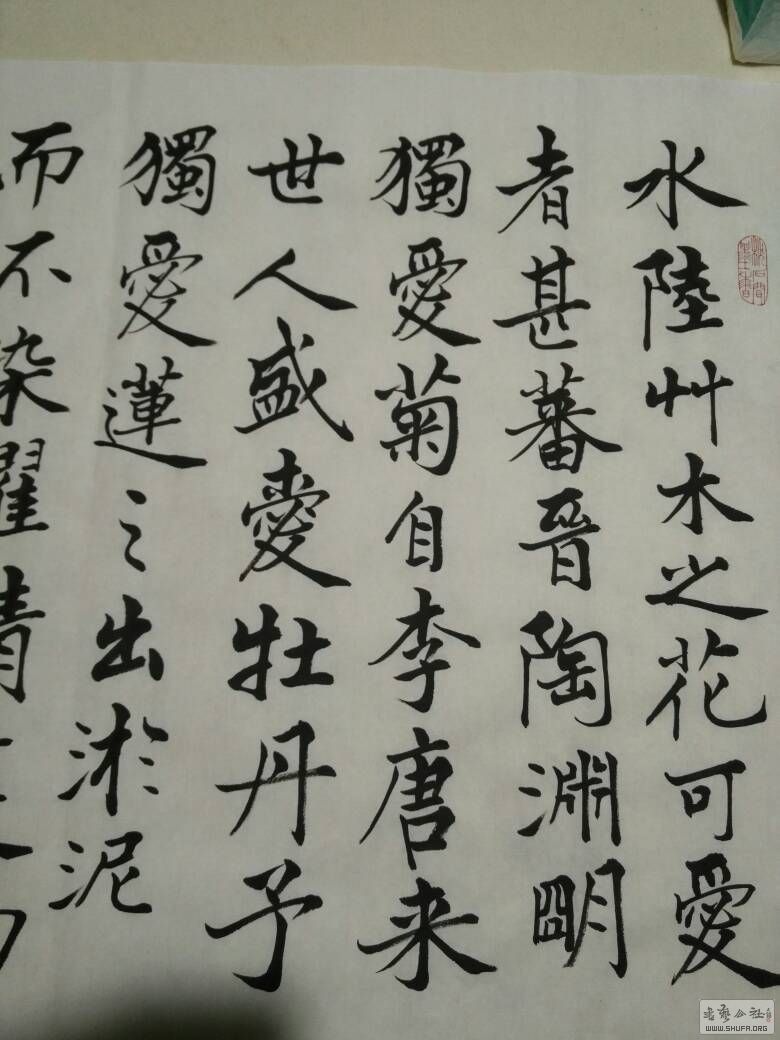 水陸艸木之花可愛
者甚蕃晉陶淵明
獨愛菊自李唐来
世人盛愛牡丹予
獨愛蓮之出淤泥
而不染濯清
WWW.SHUFA.ORG